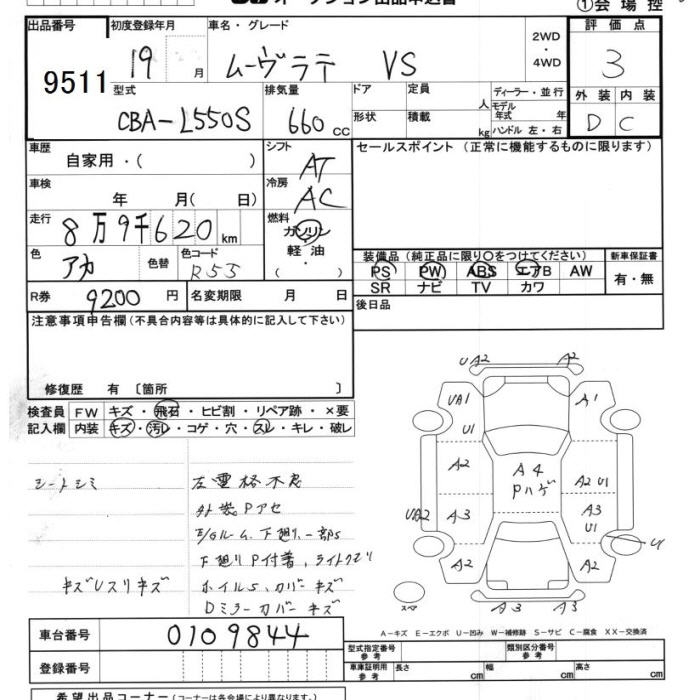 オークション出品申込書
①会場控
出品番号 初度登録年月 車名・グレード 2WD ・ 4WD 評価点
9511 19 月 ムーヴラテ VS 3
型式 排気量 ドア 定員 人 ディーラー・並行 外装 内装
モデル年式 年
CBA-L550S 660cc 形状 積載 kg ハンドル 左・右 D C
車歴 シフト セールスポイント (正常に機能するものに限ります)
自家用・( ) AT
車検 冷房
年 月( 日) AC
走行 燃料
8万9千620km ガソリン・軽油・( )
色 色替 色コード 装備品 (純正品に限り○をつけてください) 新車保証書
アカ R55 PS PW ABS エアB AW 有・無
SR ナビ TV カワ
R券 9200円 名変期限 月 日 後日品
注意事項申告欄(不具合内容等は具体的に記入して下さい)
修復歴 有 〔箇所 〕
検査員 FW キズ・飛石・ヒビ割・リペア跡・×要
記入欄 内装 キズ・汚レ・コゲ・穴・スレ・キレ・破レ
シートシミ
外装Pアセ
下廻りP付着、ライトクモリ
キズUスリキズ ホイルS、カバーキズ
Dミラーカバーキズ
UA2 A2
UA1 A1
U1
A2 A4 A2 U1
Pハゲ
UA2 A3 A3
U1
U
A2 A2
スペア A3 A3
A-キズ E-エクボ U-凹み W-補修跡 S-サビ C-腐食 XX-交換済
車台番号 0109844
型式指定番号 参考 類別区分番号 参考
登録番号 車庫証明用 参考 長さ cm 幅 cm 高さ cm
希望出品コーナー(コーナーは各会場により異なります。)